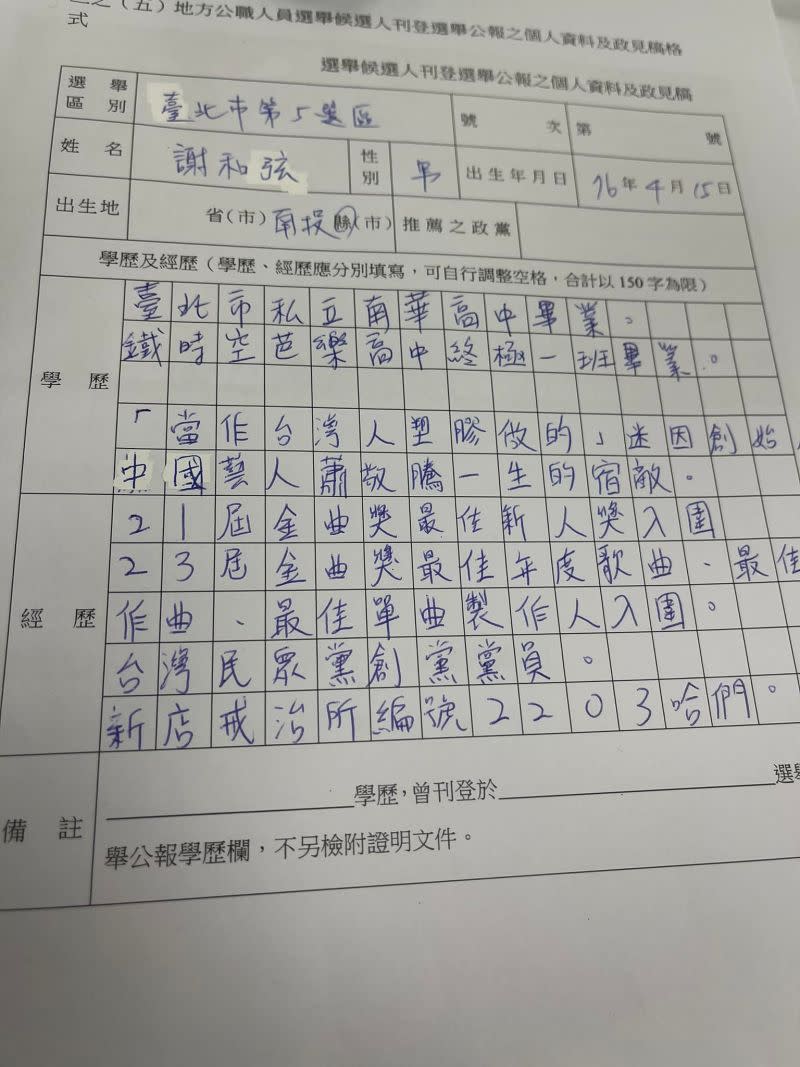 之(五)地方公職人員選舉候選人刊登選舉公報之個人資料及政見稿格
式
選舉候選人刊登選舉公報之個人資料及政見稿
選舉區別 臺北市第5選區 號次 第 號
姓名 謝和弦 性別 男 出生年月日 76年4月15日
出生地 省(市)南投縣(市) 推薦之政黨
學歷及經歷(學歷、經歷應分別填寫,可自行調整空格,合計以150字為限)
學歷
臺北市私立南華高中畢業。
鐵時空芭樂高中終極一班畢業。
「當作台灣人塑膠做的」迷因創始
中國藝人蕭敬騰一生的宿敵。
經歷
21屆金曲獎最佳新人獎入圍
23屆金曲獎最佳年度歌曲、最佳
作曲、最佳單曲製作人入圍。
台灣民眾黨創黨黨員。
新店戒治所編號2203哈們。
備註
學歷,曾刊登於 選舉
舉公報學歷欄,不另檢附證明文件。